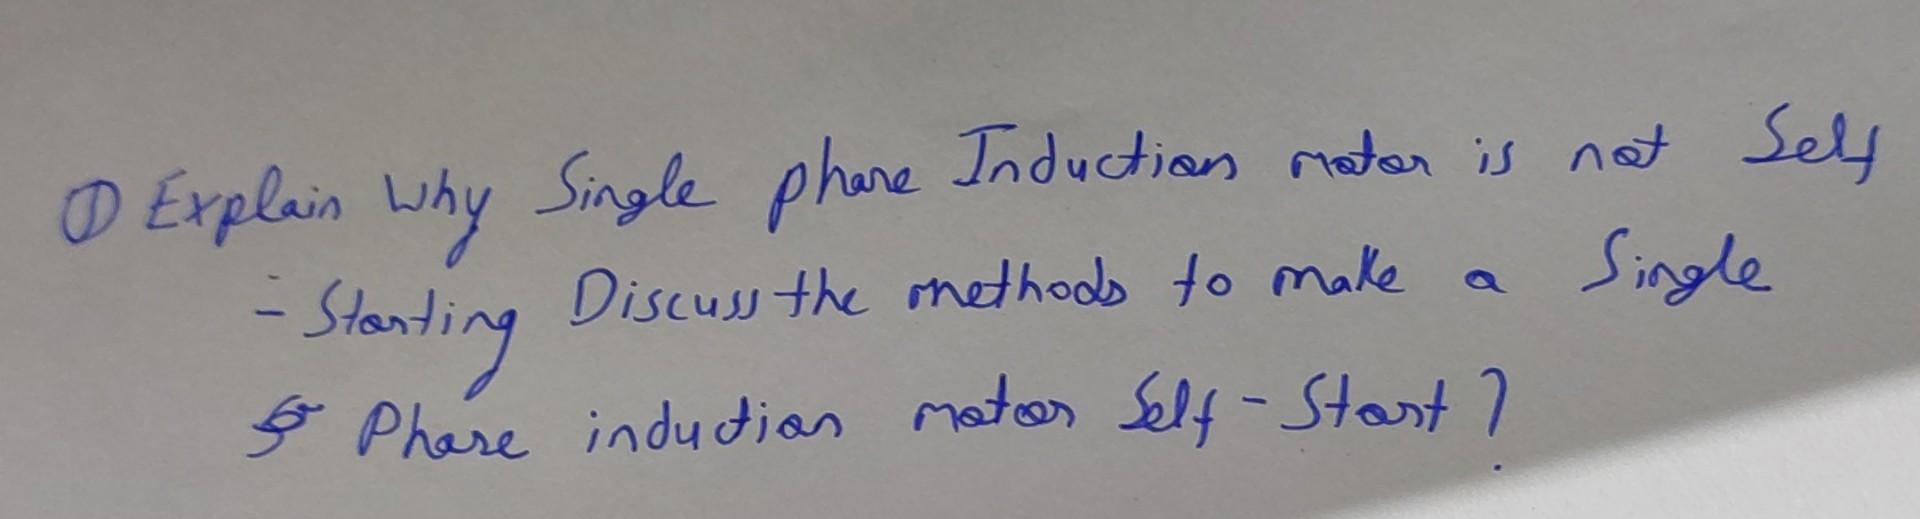 ① Explain Why Single phase Induction motor is not Self
- Starting Discuss the methods to make a Single
Phase induction motor Self-Start?